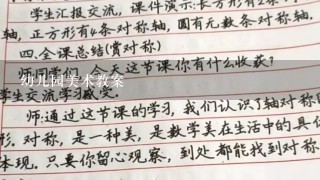 学生汇报交流，课件演示:长方形有2条
轴，正方形有4条对称轴，圆有无数条对称轴.
四.全课总结(赏对称)
今天这节课你有什么收获?
幼儿园美术教案
学生交流学习感受.
师:通过这节课的学习，我们认识了轴对称
形.对称，是一种美，是数学美在生活中的具体
体现.只要你留心观察，到处都能找到对称